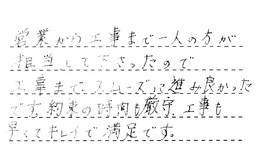 営業から工事まで一人の方が
担当して下さったので
工事まで、スムーズで進み良かった
です。約束の時間も厳守、工事も
早くてキレイで満足です。